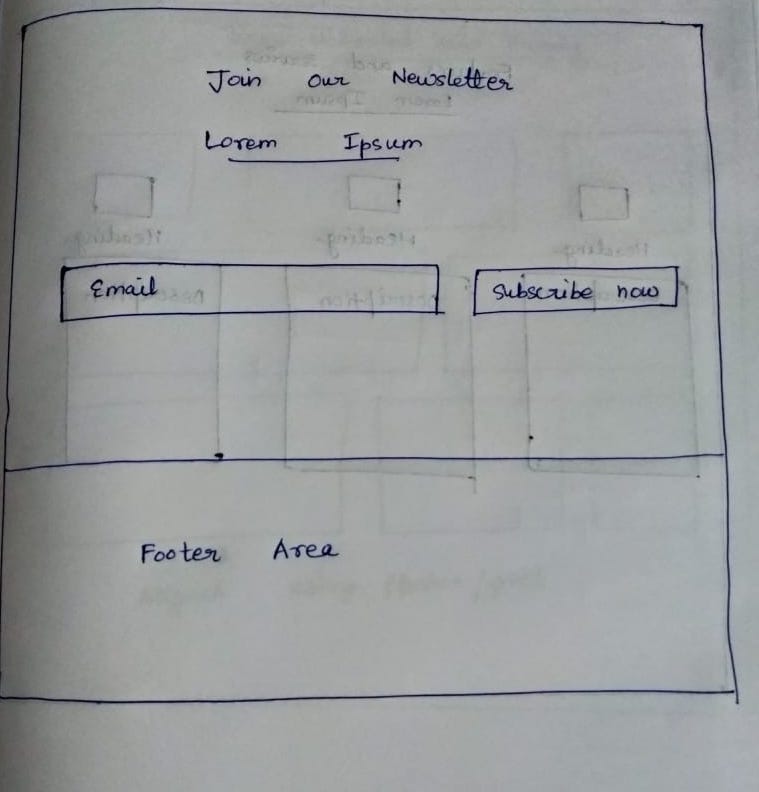 Join our Newsletter
Lorem Ipsum
Email
Subscribe now
Footer Area